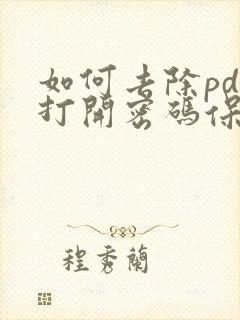 如何去除pd
打開密碼保
程秀蘭